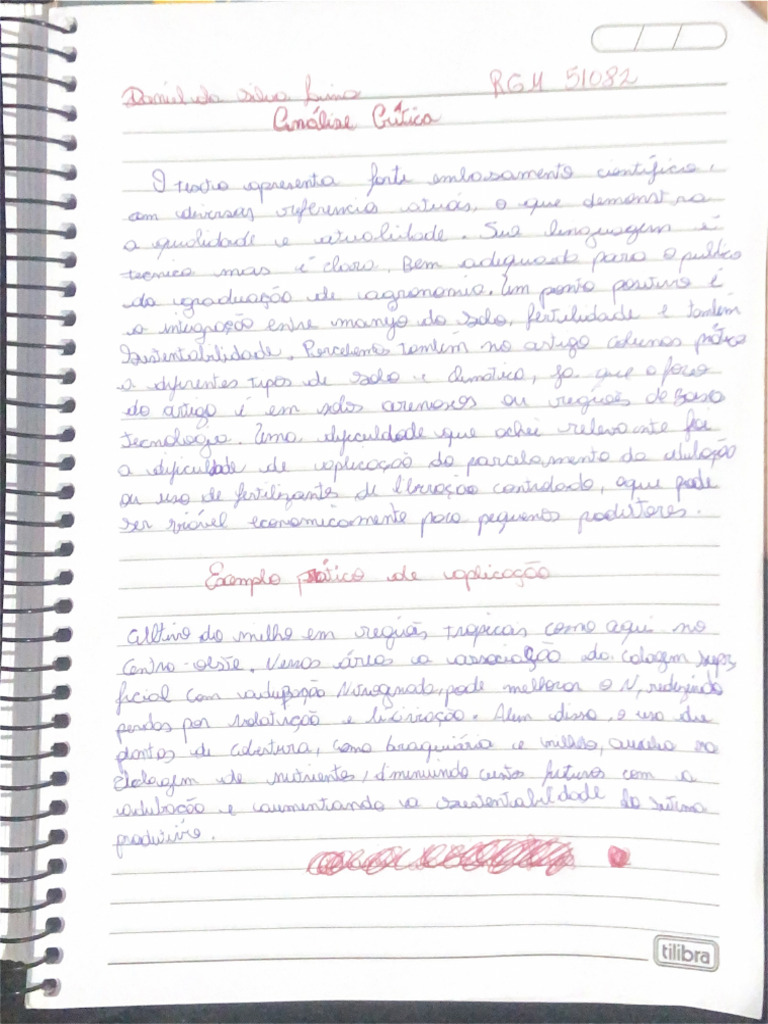 Daniel da Silva Lima RGM 51082
Análise Crítica
O texto apresenta forte embasamento científico,
com diversas referencia atuais, o que demonstra
a qualidade e atualidade. Sua linguagem é
tecnica mas é clara. Bem adequada para o publico
da graduação de agronomia. Um ponto positivo é
a integração entre manejo do solo, fertilidade e também
Sustentabilidade. Percebemos também no artigo prática
a diferentes tipos de solo e climático, ja que o foco
do artigo é em solos arenosos ou regiões de Baixa
tecnologia. Uma dificuldade que achei relevante foi
a dificuldade de aplicação do parcelamento da adubação
ou uso de fertilizantes de liberação controlada, que pode
ser viável economicamente para pequenos produtores.
Exemplo prático de aplicação
Cultivo do milho em regiões tropicais como aqui no
Centro-oeste. Nessas áreas a associação da calagem super
ficial com adubação Nitrogenada, pode melhorar o N, reduzindo
perdas por volatização e lixiviação. Alem disso, o uso de
plantas de cobertura, como braquiária e milheto, auxilia na
ciclagem de nutrientes, diminuindo custos futuros com a
adubação e aumentando a sustentabilidade do sistema
produtivo.
tilibra